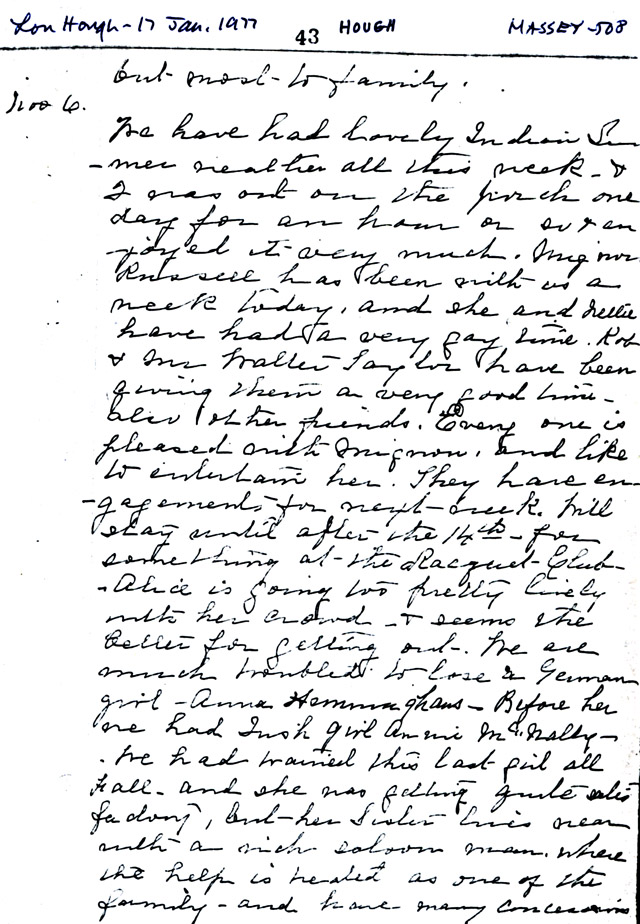 Lon Hough - 17 Jan. 1977 43 HOUGH MASSEY - 508
but most to family.
Nov 6.
We have had lovely Indian Sum
- mer weather all this week - &
I was out on the porch one
day for an hour or so & en
- joyed it very much. Mignon
Russell has been with us a
week today, and she and Nellie
have had a very gay time. Rob
& Mr Walter Taylor have been
giving them a very good time -
also other friends. Every one is
pleased with Mignon, and like
to entertain her. They have en-
- gagements for next week. Will
stay until after the 14th - for
something at the Racquet Club -
- Alice is going too pretty lively
with her crowd - & seems the
better for getting out. We are
much troubled to lose a German
girl - Anna Hemminghaus - Before her
we had Irish girl Annie McNally -
. We had trained this last girl all
Fall - and she was getting quite satis
factory, but her sister lives near
with a rich saloon man, where
the help is treated as one of the
family - and have many concessions